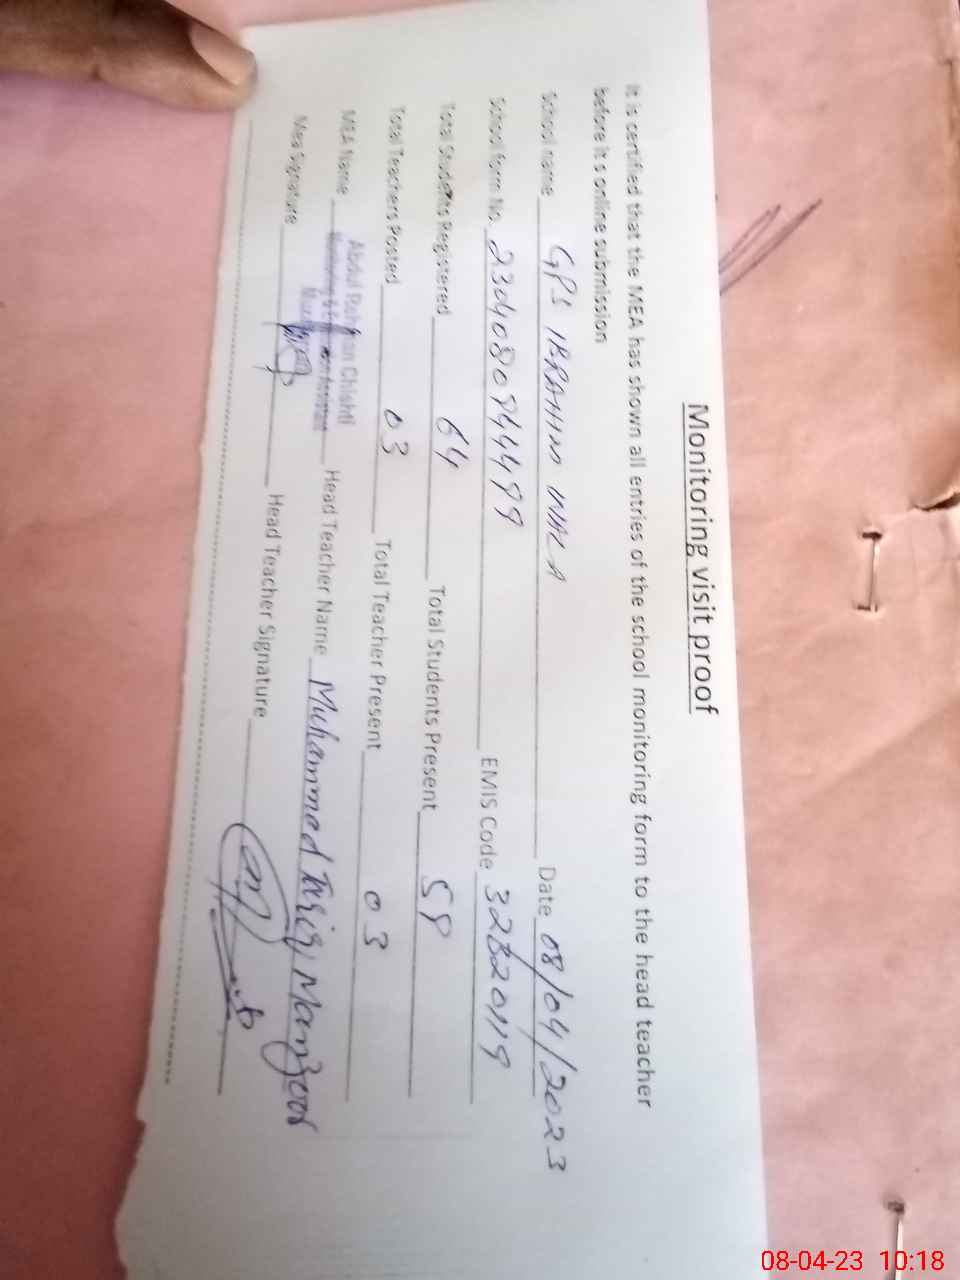 Monitoring visit proof
It is certified that the MEA has shown all entries of the school monitoring form to the head teacher
before it s online submission
School name GPS IBRAHIM WALA Date 08/04/2023
School form No. EMIS Code 32320119
Total Students Registered 64 Total Students Present 58
Total Teachers Posted 03 Total Teacher Present 03
MEA Name Abdul Rehman Chishti Head Teacher Name Muhammad Tariq Manzoor
Mea Signature Head Teacher Signature
08-04-23 10:18